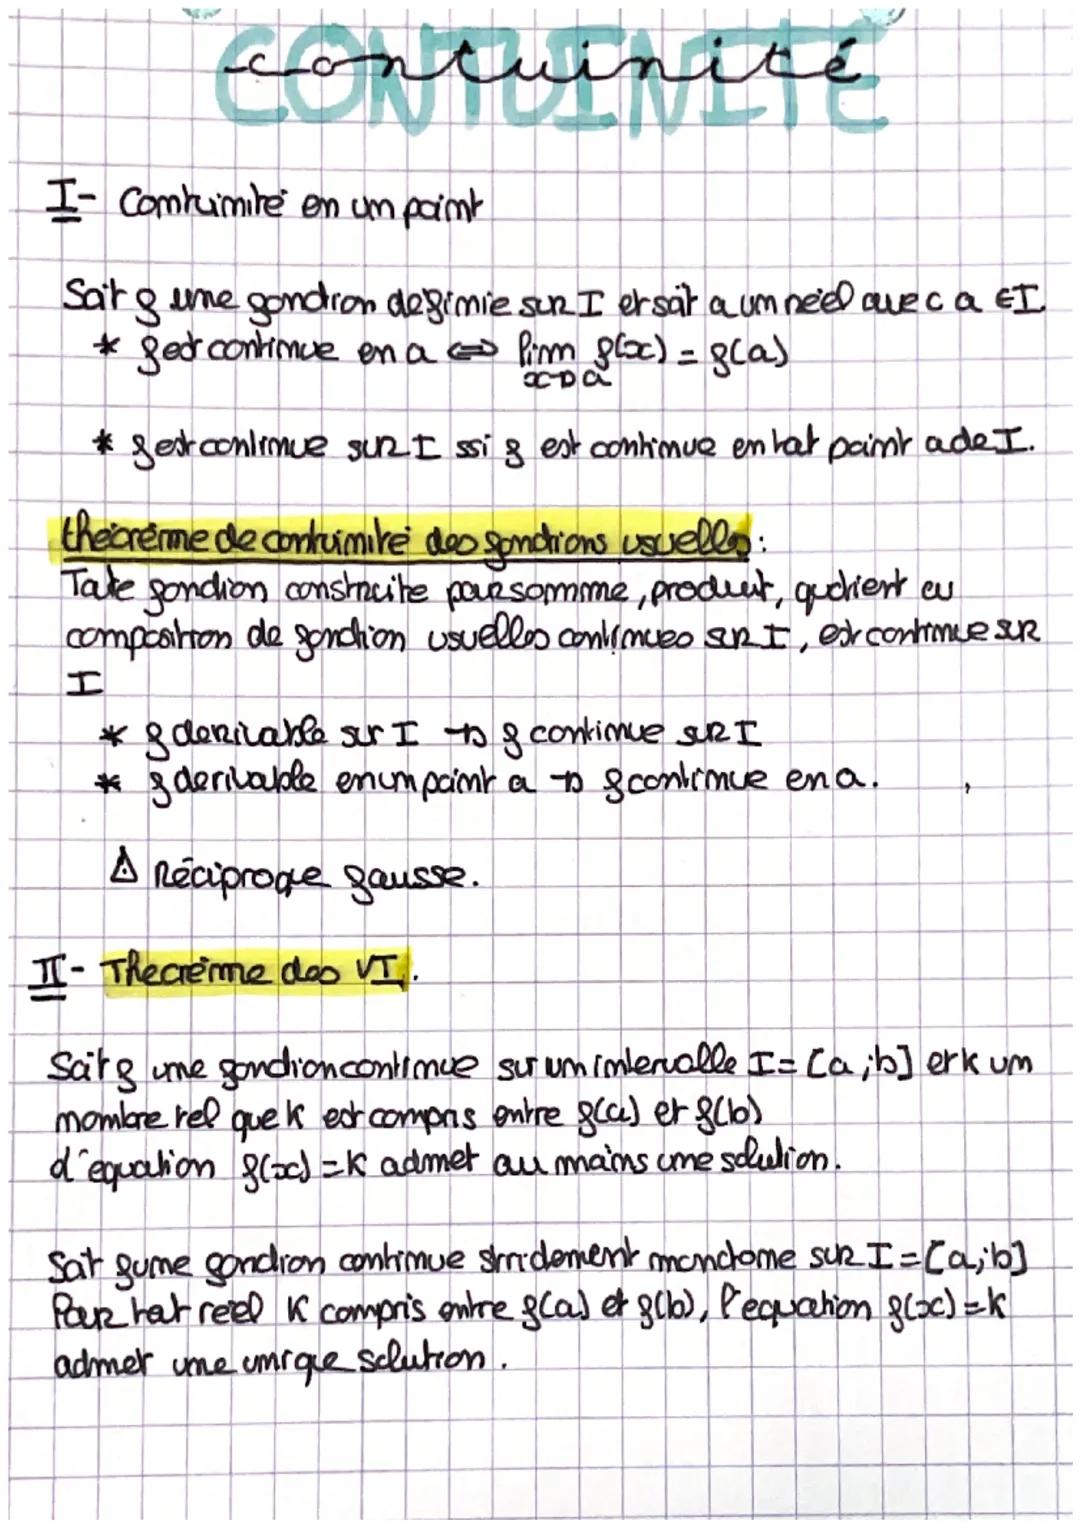 CONTUINITÉ
contuinité
I- Contuinité en un point
Soit f une fonction définie sur I et soit a un réel avec a ∈ I
* f est continue en a ⇔ lim f(x) = f(a)
x→a
* f est continue sur I ssi f est continue en tout point a de I.
théorème de contuinité des fonctions usuelles :
Toute fonction construite par somme, produit, quotient ou
composition de fonction usuelles continues sur I, est continue sur
I
* f derivable sur I → f continue sur I
* f derivable en un point a → f continue en a.
⚠ Réciproque fausse.
II- Théorème des VI.
Soit f une fonction continue sur un intervalle I = [a ; b] et k un
nombre tel que k est compris entre f(a) et f(b)
l'equation f(x) = k admet au moins une solution.
Soit f une fonction continue strictement monotone sur I = [a ; b]
Pour tout réel k compris entre f(a) et f(b), l'equation f(x) = k
admet une unique solution.